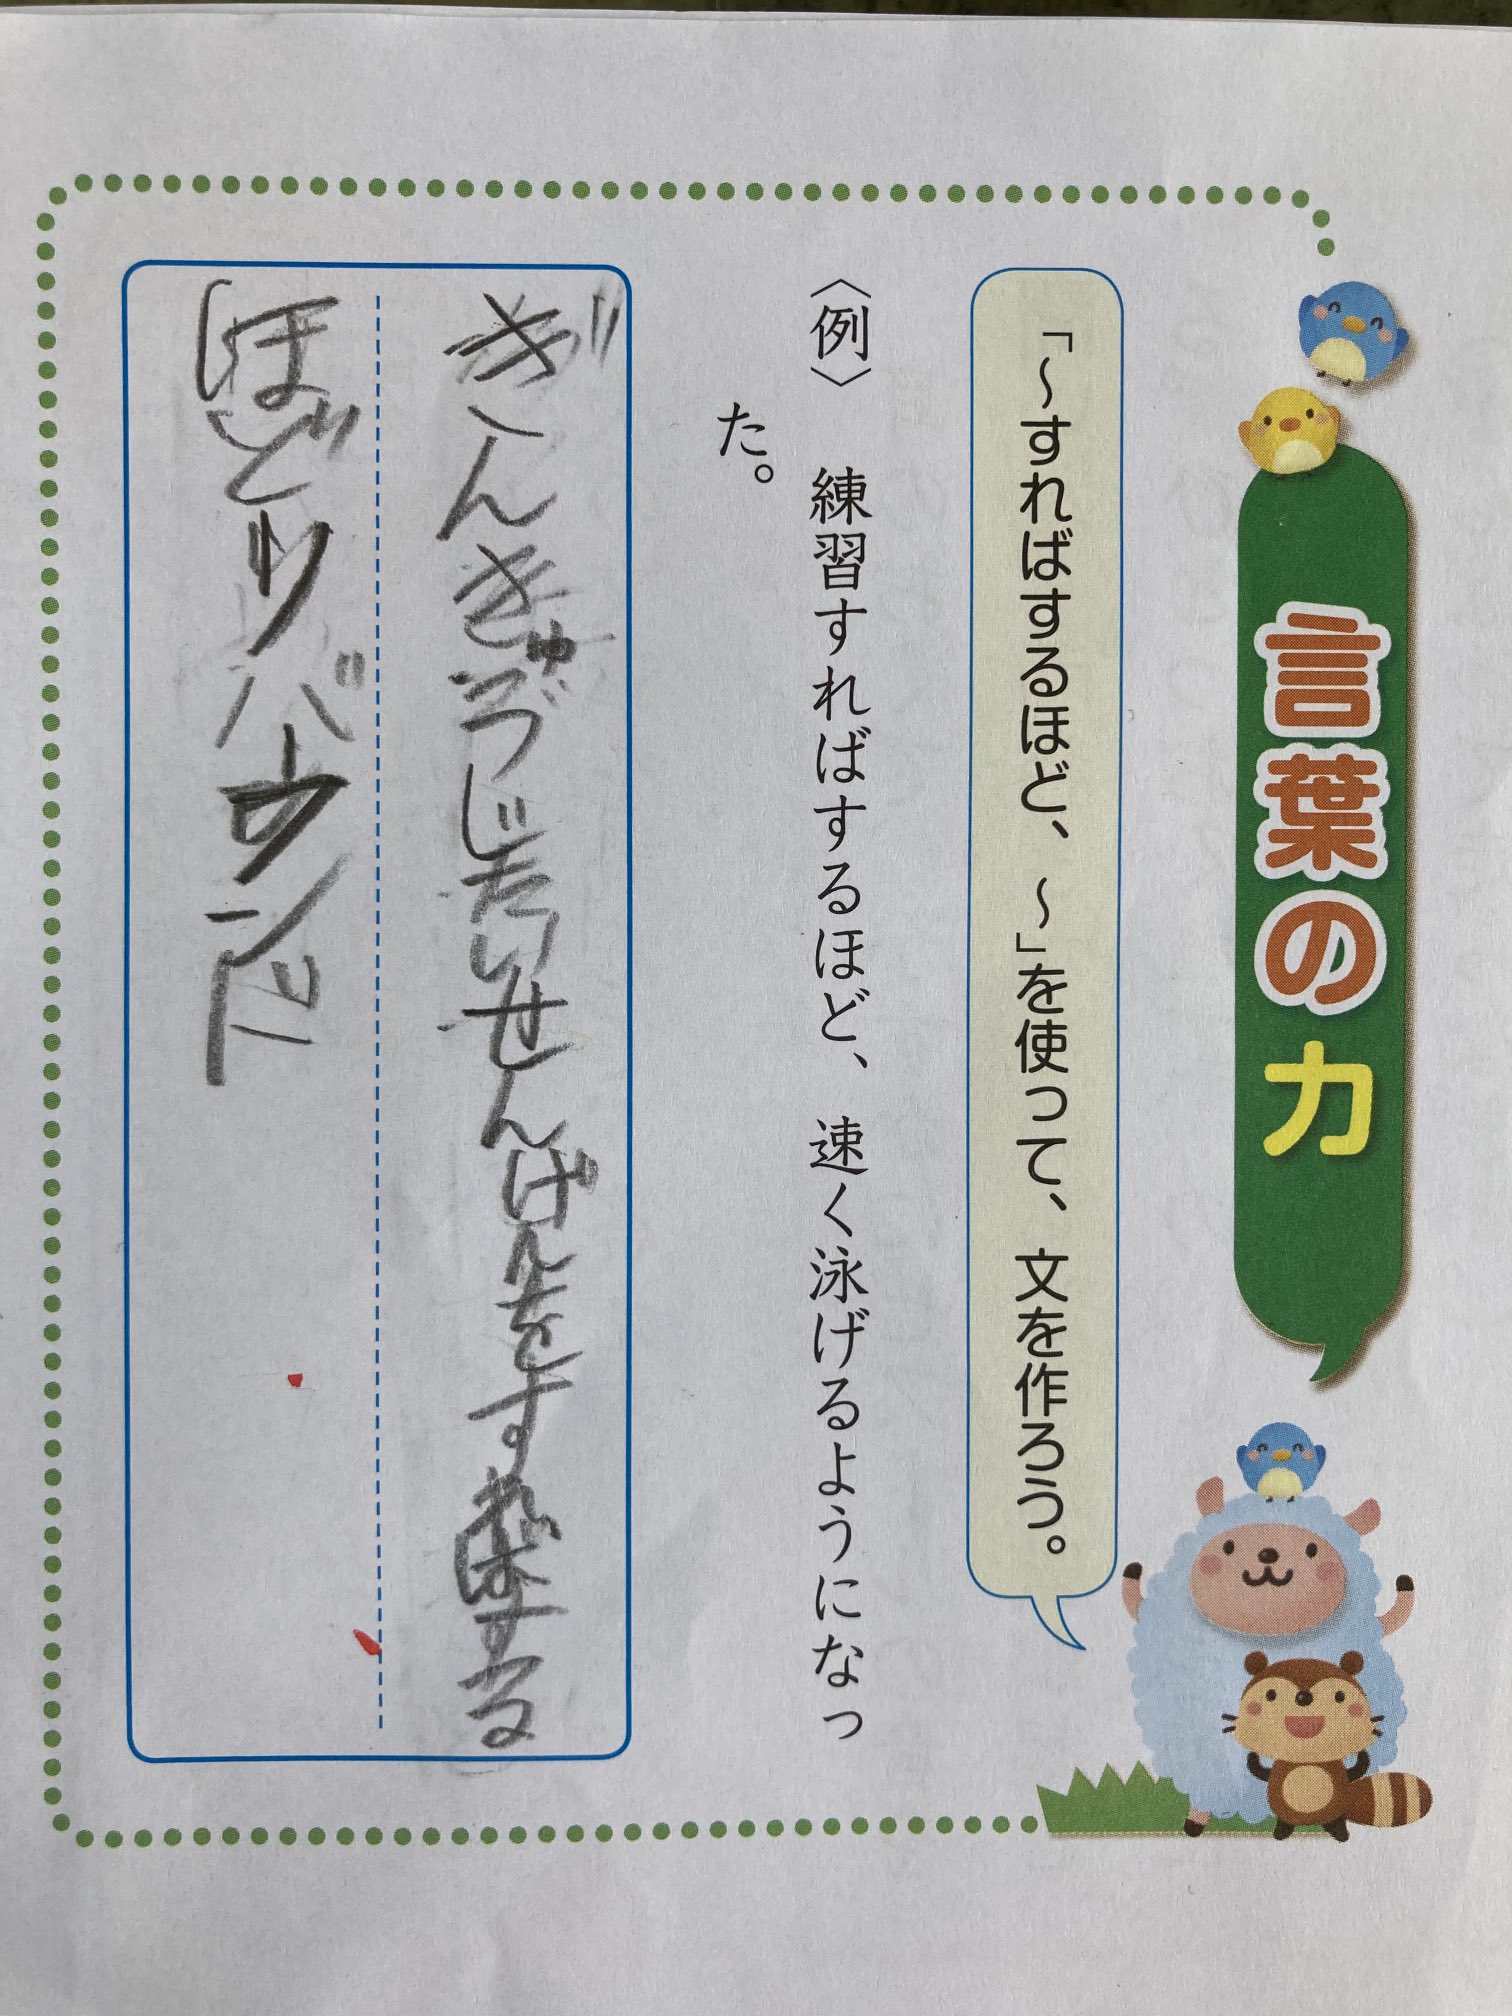 言葉の力
「～すればするほど、～」を使って、文を作ろう。
〈例〉 練習すればするほど、速く泳げるようになっ
た。
ぎんきゅうじたいせんげんをすればする
ほどリバウンド